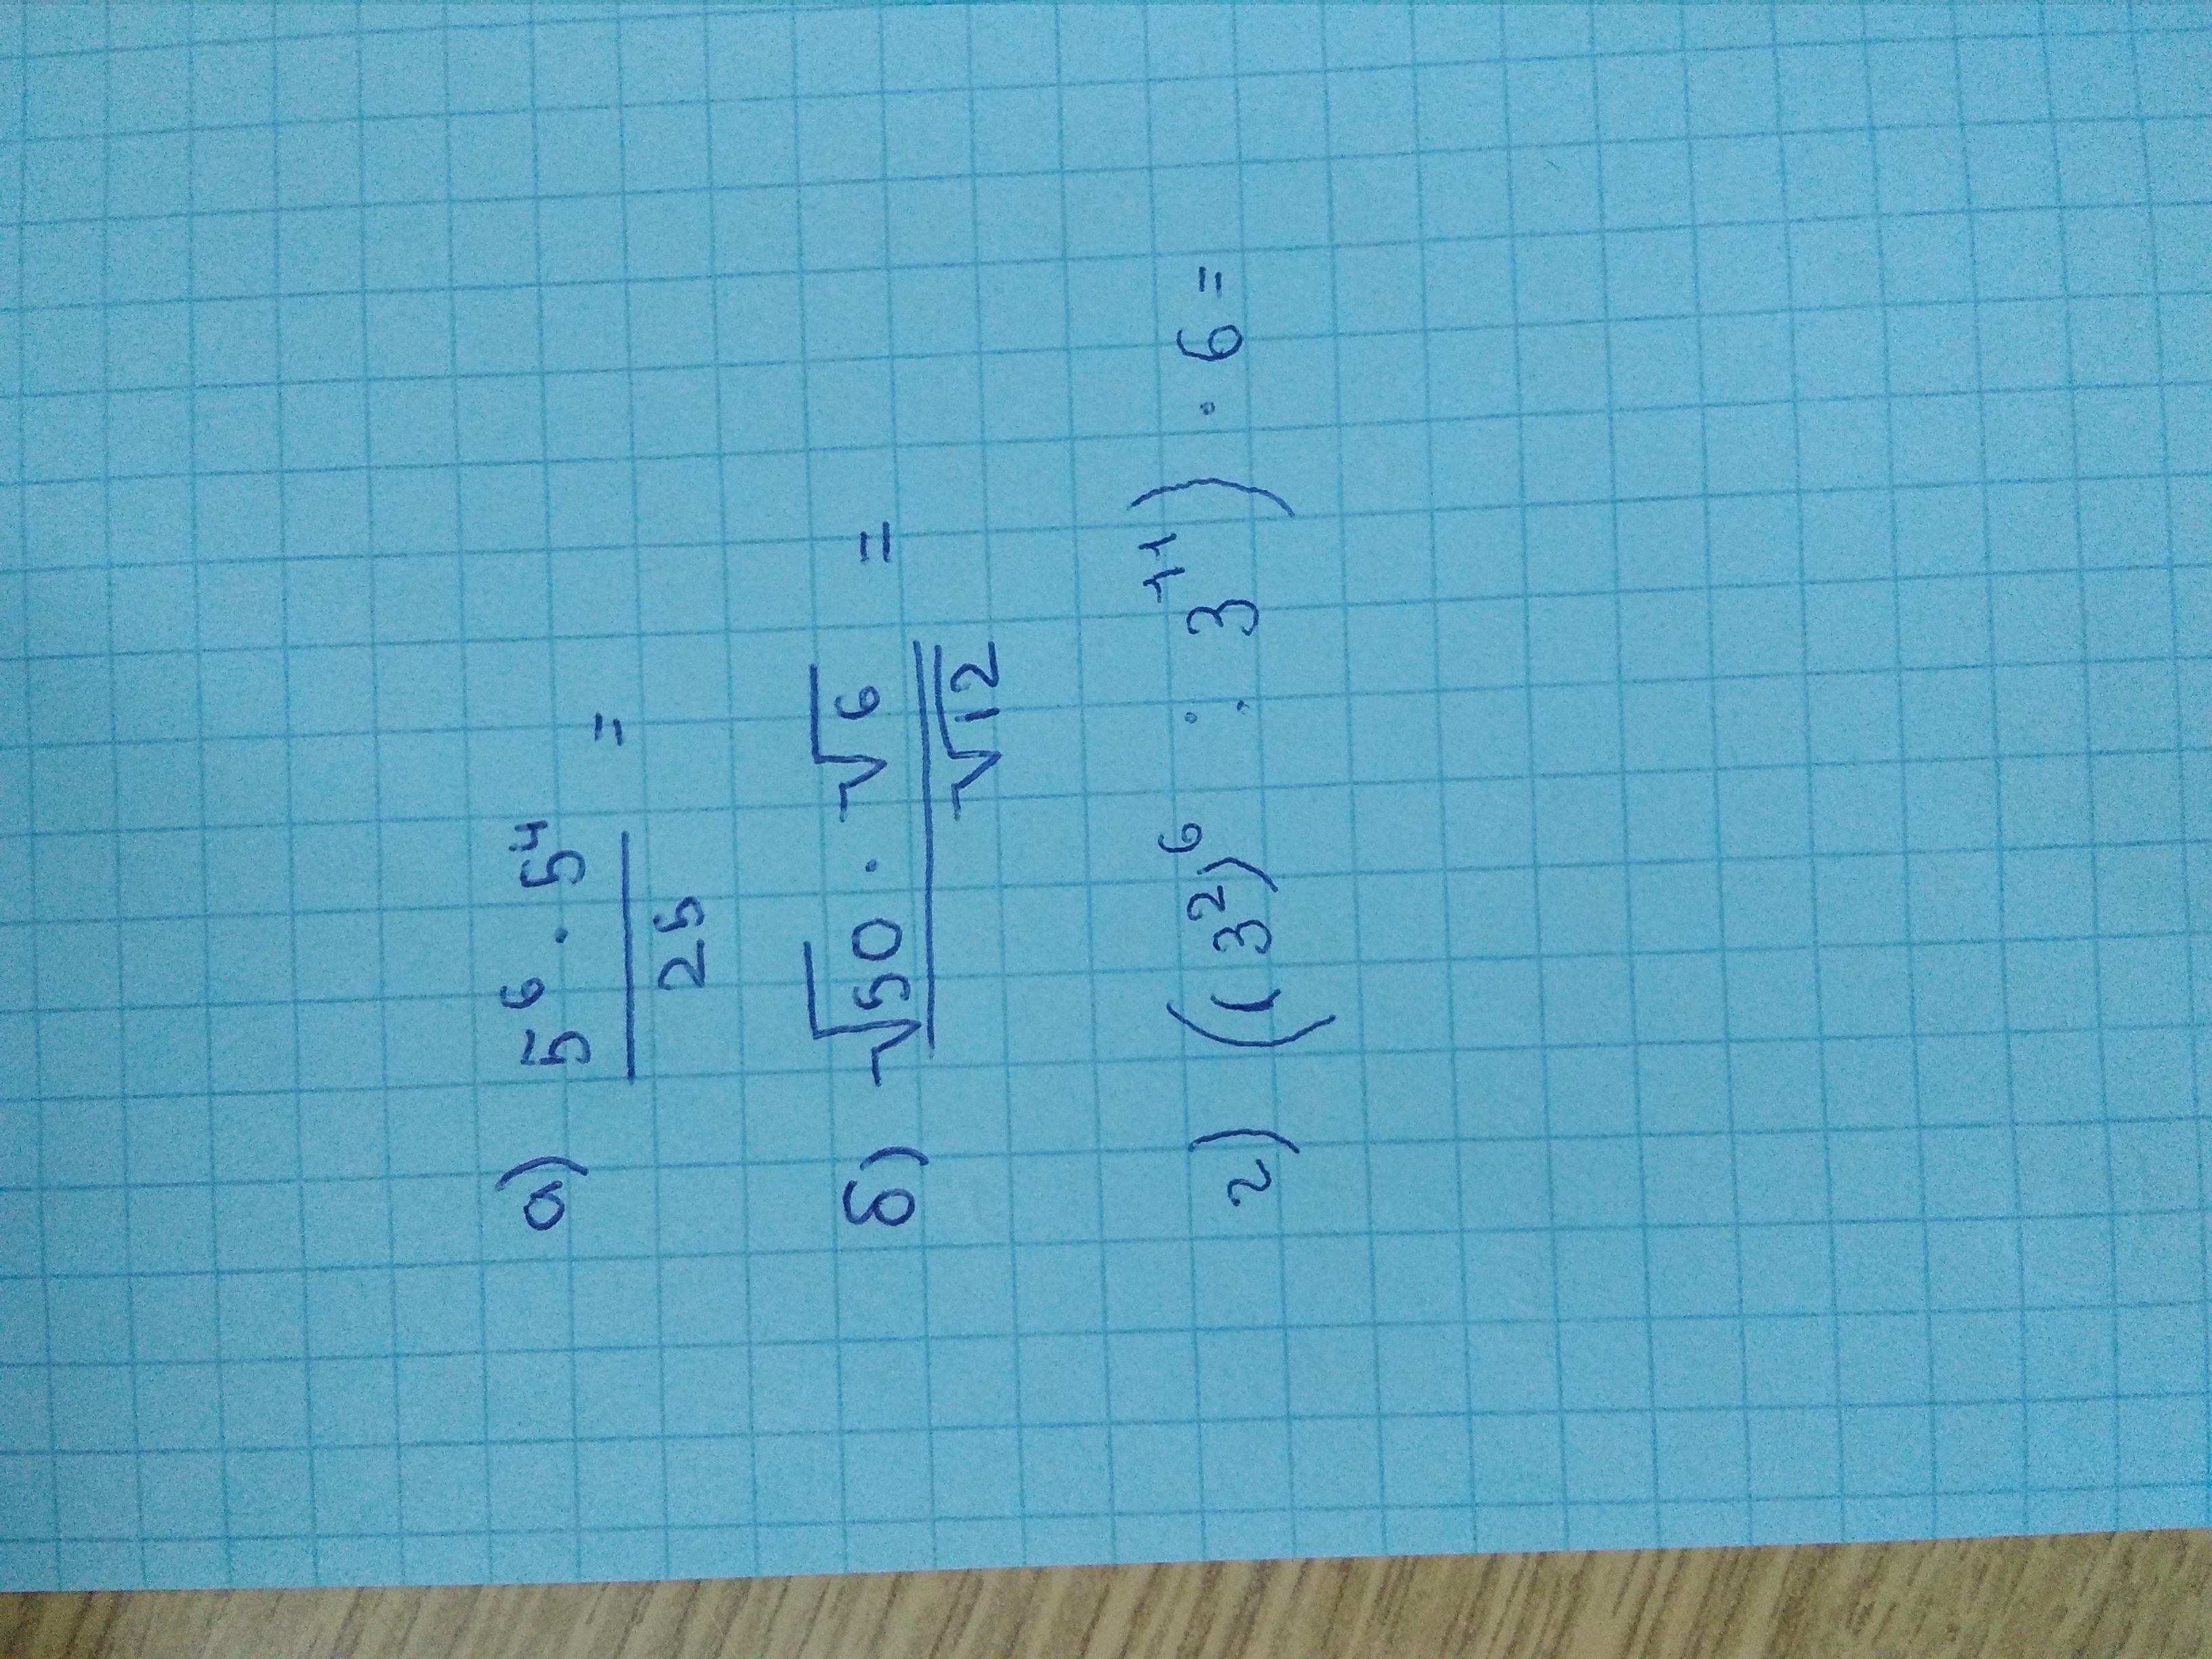 а) 5⁶ · 5⁴ / 25 =
б) √50 · √6 / √12 =
г) ((3²)⁶ : 3¹¹) · 6 =